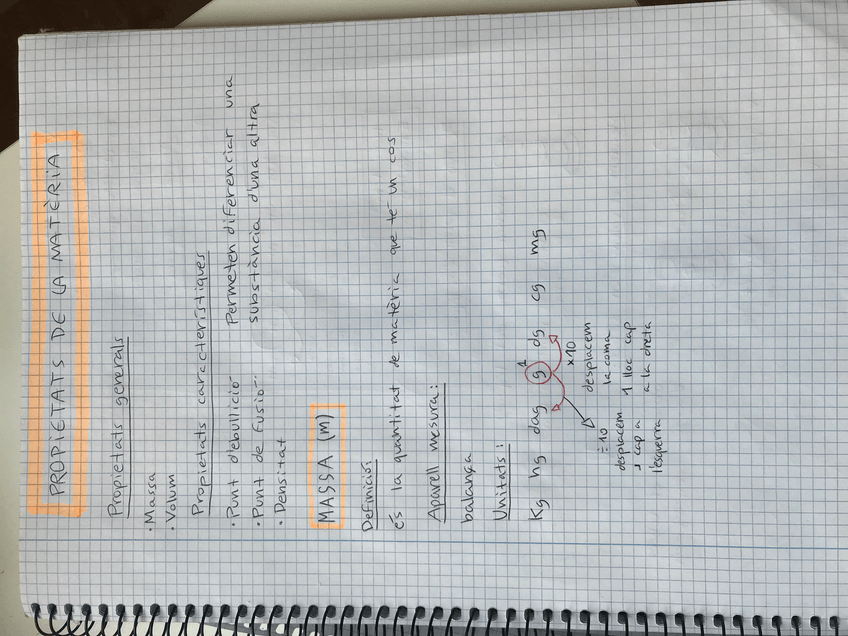 PROPIETATS DE LA MATÈRIA
Propietats generals
· Massa
· Volum
Propietats característiques
· Punt d'ebullició
· Punt de fusió
· Densitat
Permeten diferenciar una
substància d'una altra
MASSA (m)
Definició:
és la quantitat de matèria que té un cos
Aparell mesura:
balança
Unitats:
Kg hg dag g dg cg mg
1
÷10
desplacem
1 cap a
l'esquerra
×10
desplacem
la coma
1 lloc cap
a la dreta